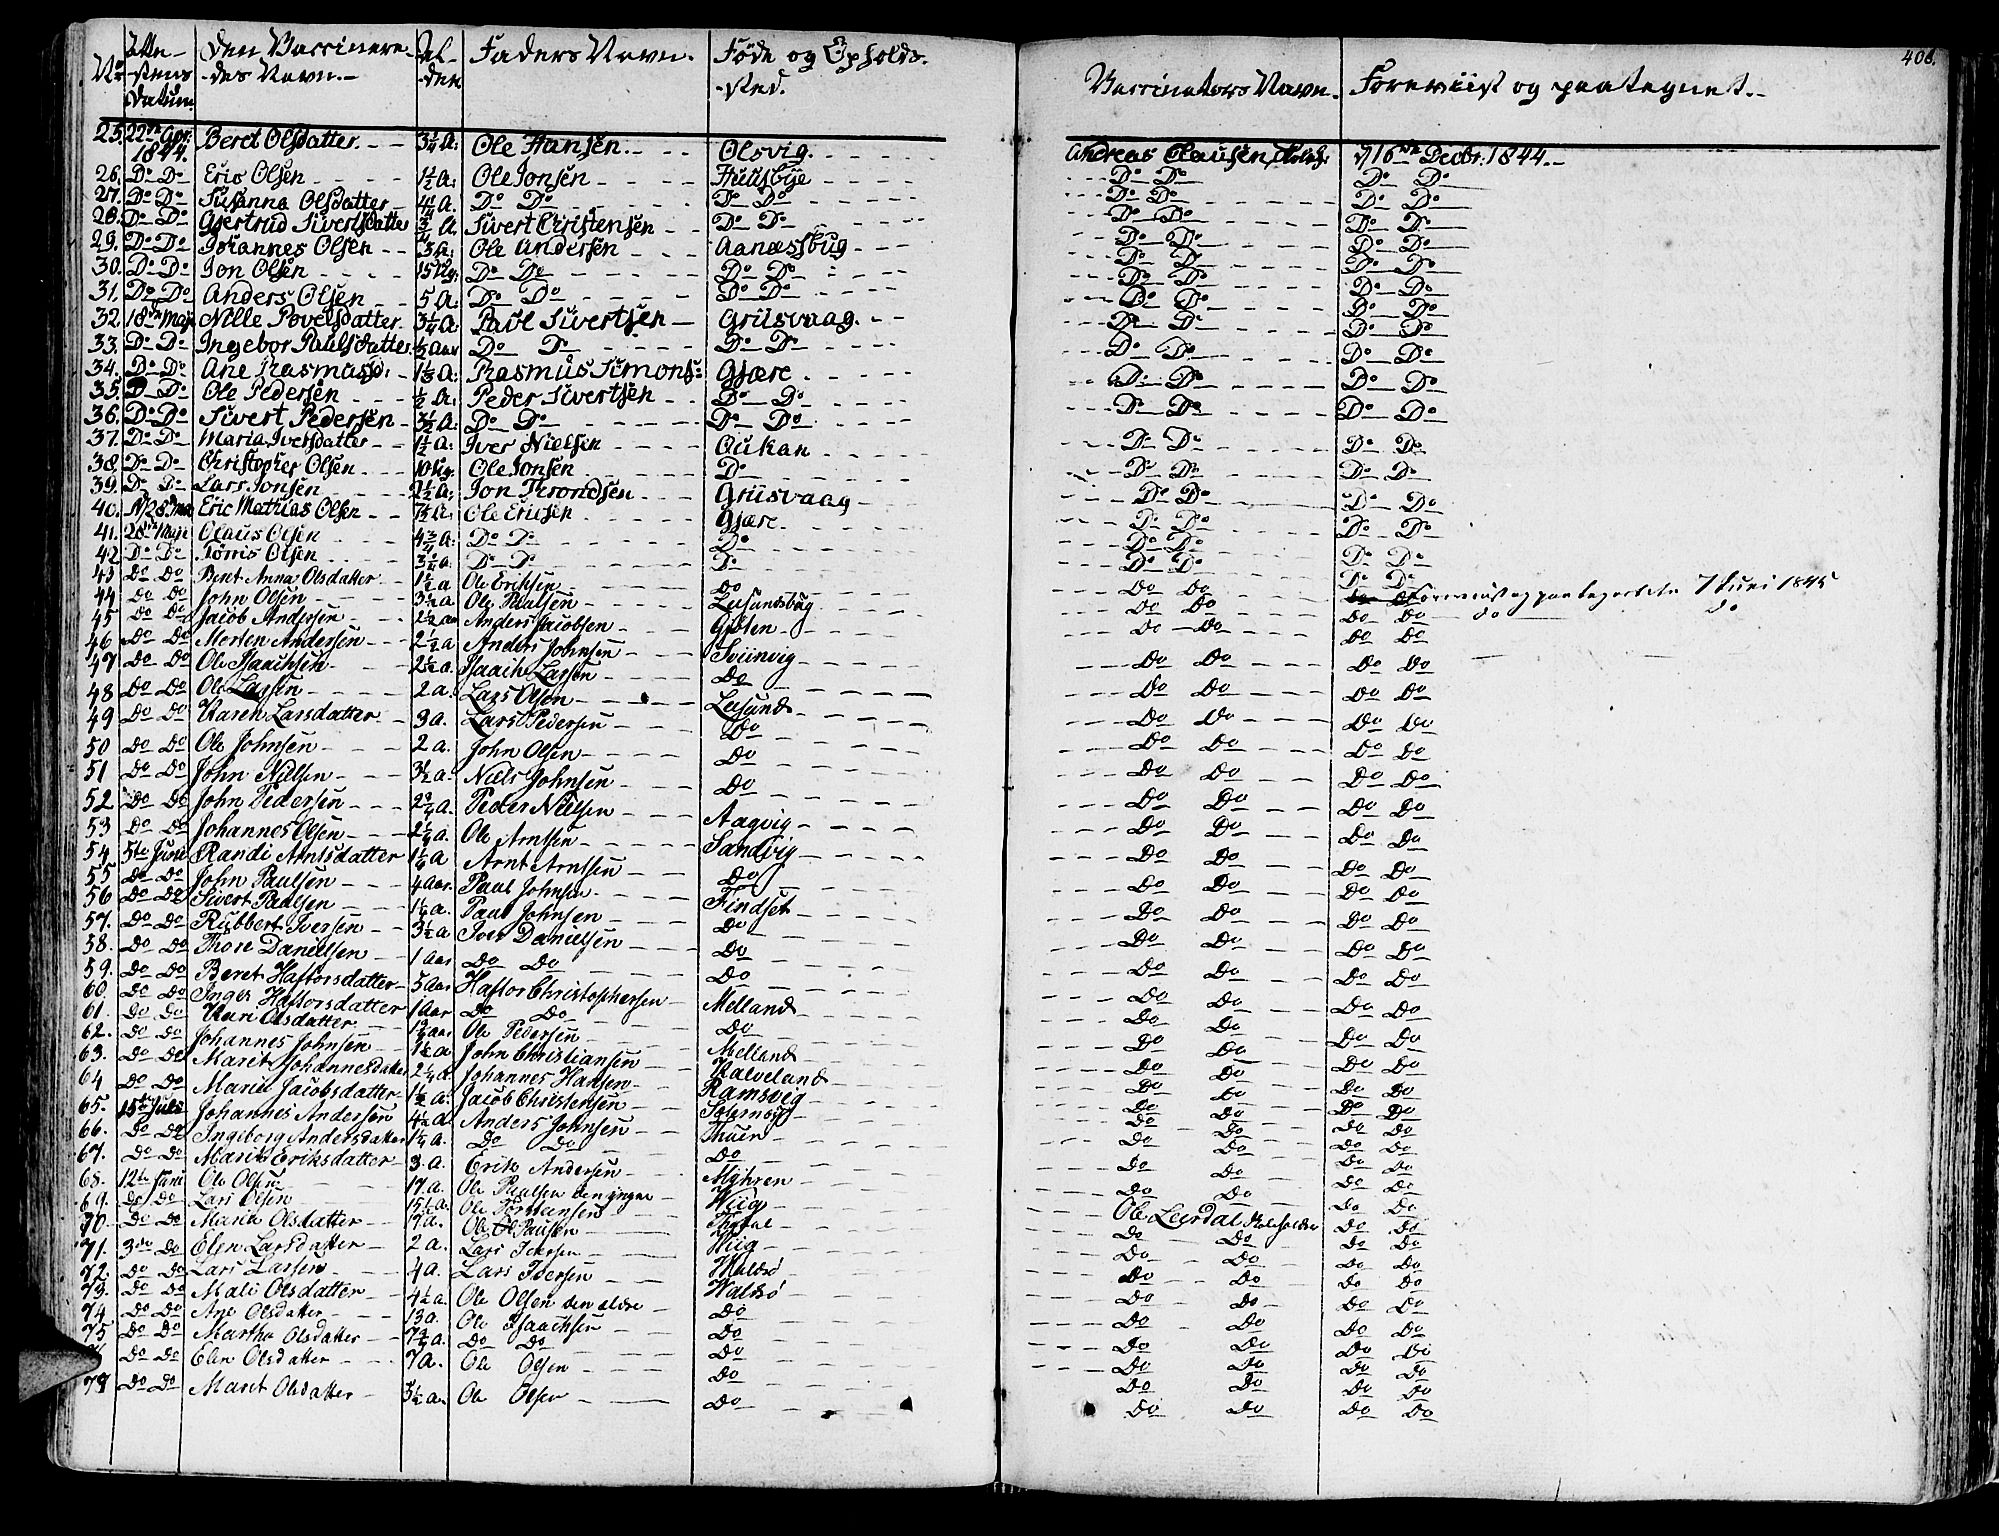 406.
No Attestens Datum Den Vaccineredes Navn. Alderen Faders Navn. Føde og Opholdssted. Vaccinators Navn. Foreviist og paategnet.
25. 22de Apr: 1844. Beret Olsdatter 3¼ A: Ole Hansen. Olsvig. Andreas Clausen, d 16de Decbr: 1844.
26. Do Do Eric Olsen 1½ A: Ole Jonsen Huusbye Do Do Do Do
27. Do Do Susanna Olsdatter A. Do Do Do Do Do Do Do Do
28. Do Do Gjertrud Siversdatter A. Sivert Christensen Do Do Do Do Do Do
29. Do Do Johannes Olsen 3 A: Ole Andersen Aanæssbug Do Do Do Do
30. Do Do Jon Olsen 15 Do Do Do Do Do Do Do Do
31. Do Do Anders Olsen 5 A: Do Do Do Do Do Do Do Do
32. 18de Maji Nille Povelsdatter 3¼ A: Paul Sivertsen Griisvaag. Do Do Do Do
33. Do Do Ingebor Paulsdatter ½ Aar Do Do Do Do Do Do Do Do
34. Do Do Ane Rasmusd: 1⅓ A: Rasmus Simons: Gjære Do Do Do Do
35. D Do Ole Pedersen ½ A: Peder Sivertsen Do Do Do Do Do Do
36. Do Do Sivert Pedersen 3½ A: Do Do Do Do Do Do Do Do
37. Do Do Maria Iversdatter 1½ A: Iver Nielsen Oukan Do Do Do Do
38. Do Do Christopher Olsen 10 Ole Jonsen Do Do Do Do Do
39. Do Do Lars Jonsen 2½ A: Jon Trondsen Griisvaag Do Do Do Do
40. Eric Mathias Olsen A: Ole Ericsen Gjære Do Do Do Do
41. 28de Maji Olaus Olsen 4¾ A: Do Do Do Do Do Do Do
42 Do Do Tørris Olsen 3¼ a. Do Do Do Do Do Do Do
43 Do Do Beret Anna Olsdatter 1½ a Ole Eriksen do Do Do 7 Juni 1845
44 do Do John Olsen 3½ a Ole Paulsen Leesundsbug Do Do Do Do do Do
45 Do Do Jacob Andersen 2½ aar Anders Jacobsen Gjøten Do Do Do Do
46 Do Do Merten Andersen 2½ a Anders Johnsen Sviinvig Do Do Do Do
47 Do Do Ole Isaachsen 2½ a. Isaach Larsen Do Do Do Do Do
48 Do Do Ole Larsen 2 a. Lars Olsen Leesund Do Do Do Do
49 Do Do Karen Larsdatter 3 a. Lars Pedersen Do Do Do Do Do
50 Do Do Ole Johnsen 2 a. John Olsen Do Do Do Do Do
51 Do Do John Nielsen 3½ a. Niels Johnsen Do Do Do Do Do
52 Do Do John Pedersen 2¾ a. Peder Nielsen Aagvig Do Do Do Do
53 Do Do Johannes Olsen 2¼ a. Ole Arntsen Sandvig Do Do Do Do
54 5te Juni Randi Arntsdatter 1¼ a Arnt Arntsen Do Do Do Do Do
55 Do Do John Paulsen 4 aar. Paul Johnsen Findset Do Do Do Do
56 Do Do Sivert Paulsen a. Paul Johnsen Do Do Do Do Do
57. Do Do Rubbert Iversen 3½ a Iver Danielsen Do Do Do Do Do
58. Do Do Thore Danielsen 1 aar Do Do Do Do Do Do Do
59. Do Do Beret Haftorsdatter 5 aar Haftor Christophersen Melland Do Do Do Do
60 Do Do Inger Haftorsdatter 1 aar Do Do Do Do Do Do Do
61. Do Do Kari Olsdatter aar Ole Pedersen Melland Do Do Do Do
62. Do Do Johannes Johnsen 1½ a John Christiansen Kalveland Do Do Do Do
63. Do Do Maret Johannesdatter 2¼ a. Johannes Hansen Ramsvig Do Do Do Do
64 Do Do Maria Jacobsdatter 1½ a. Jacob Christensen Do Do Do Do
65. 15de Johannes Andersen 4½ a Anders Johnsen Thuen Do Do Do Do
66. Do Do Ingeborg Andersdatter 1¼ a. Do Do Do Do Do Do Do
67. Do Do Marit Eriksdatter 3 a. Erik Andersen Myhren Do Do Do Do
68. 12te Juni Ole Olsen 17 a. Ole Paulsen den yngre Wiig Do Do Do Do
69. Do Do Lars Olsen 15½ a. Ole Ole Leerdal Skoleholder Do Do
70 Do Do Maria Olsdatter 17 a. Ole Paulsen Wiig Do Do Do Do
71. 3die Do Elen Larsdatter 2 a. Lars Iversen Do Do Do Do
72. Do Do Lars Larsen 4 a. Lars Iversen Waldsø Do Do Do Do
73. Do Do Mali Olsdatter 4½ a. Ole Olsen den eldre Do Do Do Do Do
74 Do Do Ane Olsdatter 13 a. Ole Isaachsen Do Do Do Do Do
75 Do Do Martha Olsdatter 7¾ a. Do Do Do Do Do Do Do
Do Do Elen Olsdatter 7 a. Ole Olsen Do Do Do Do Do
77 Do Do Maret Olsdatter 5½ a. Ole Olsen Do Do Do Do Do